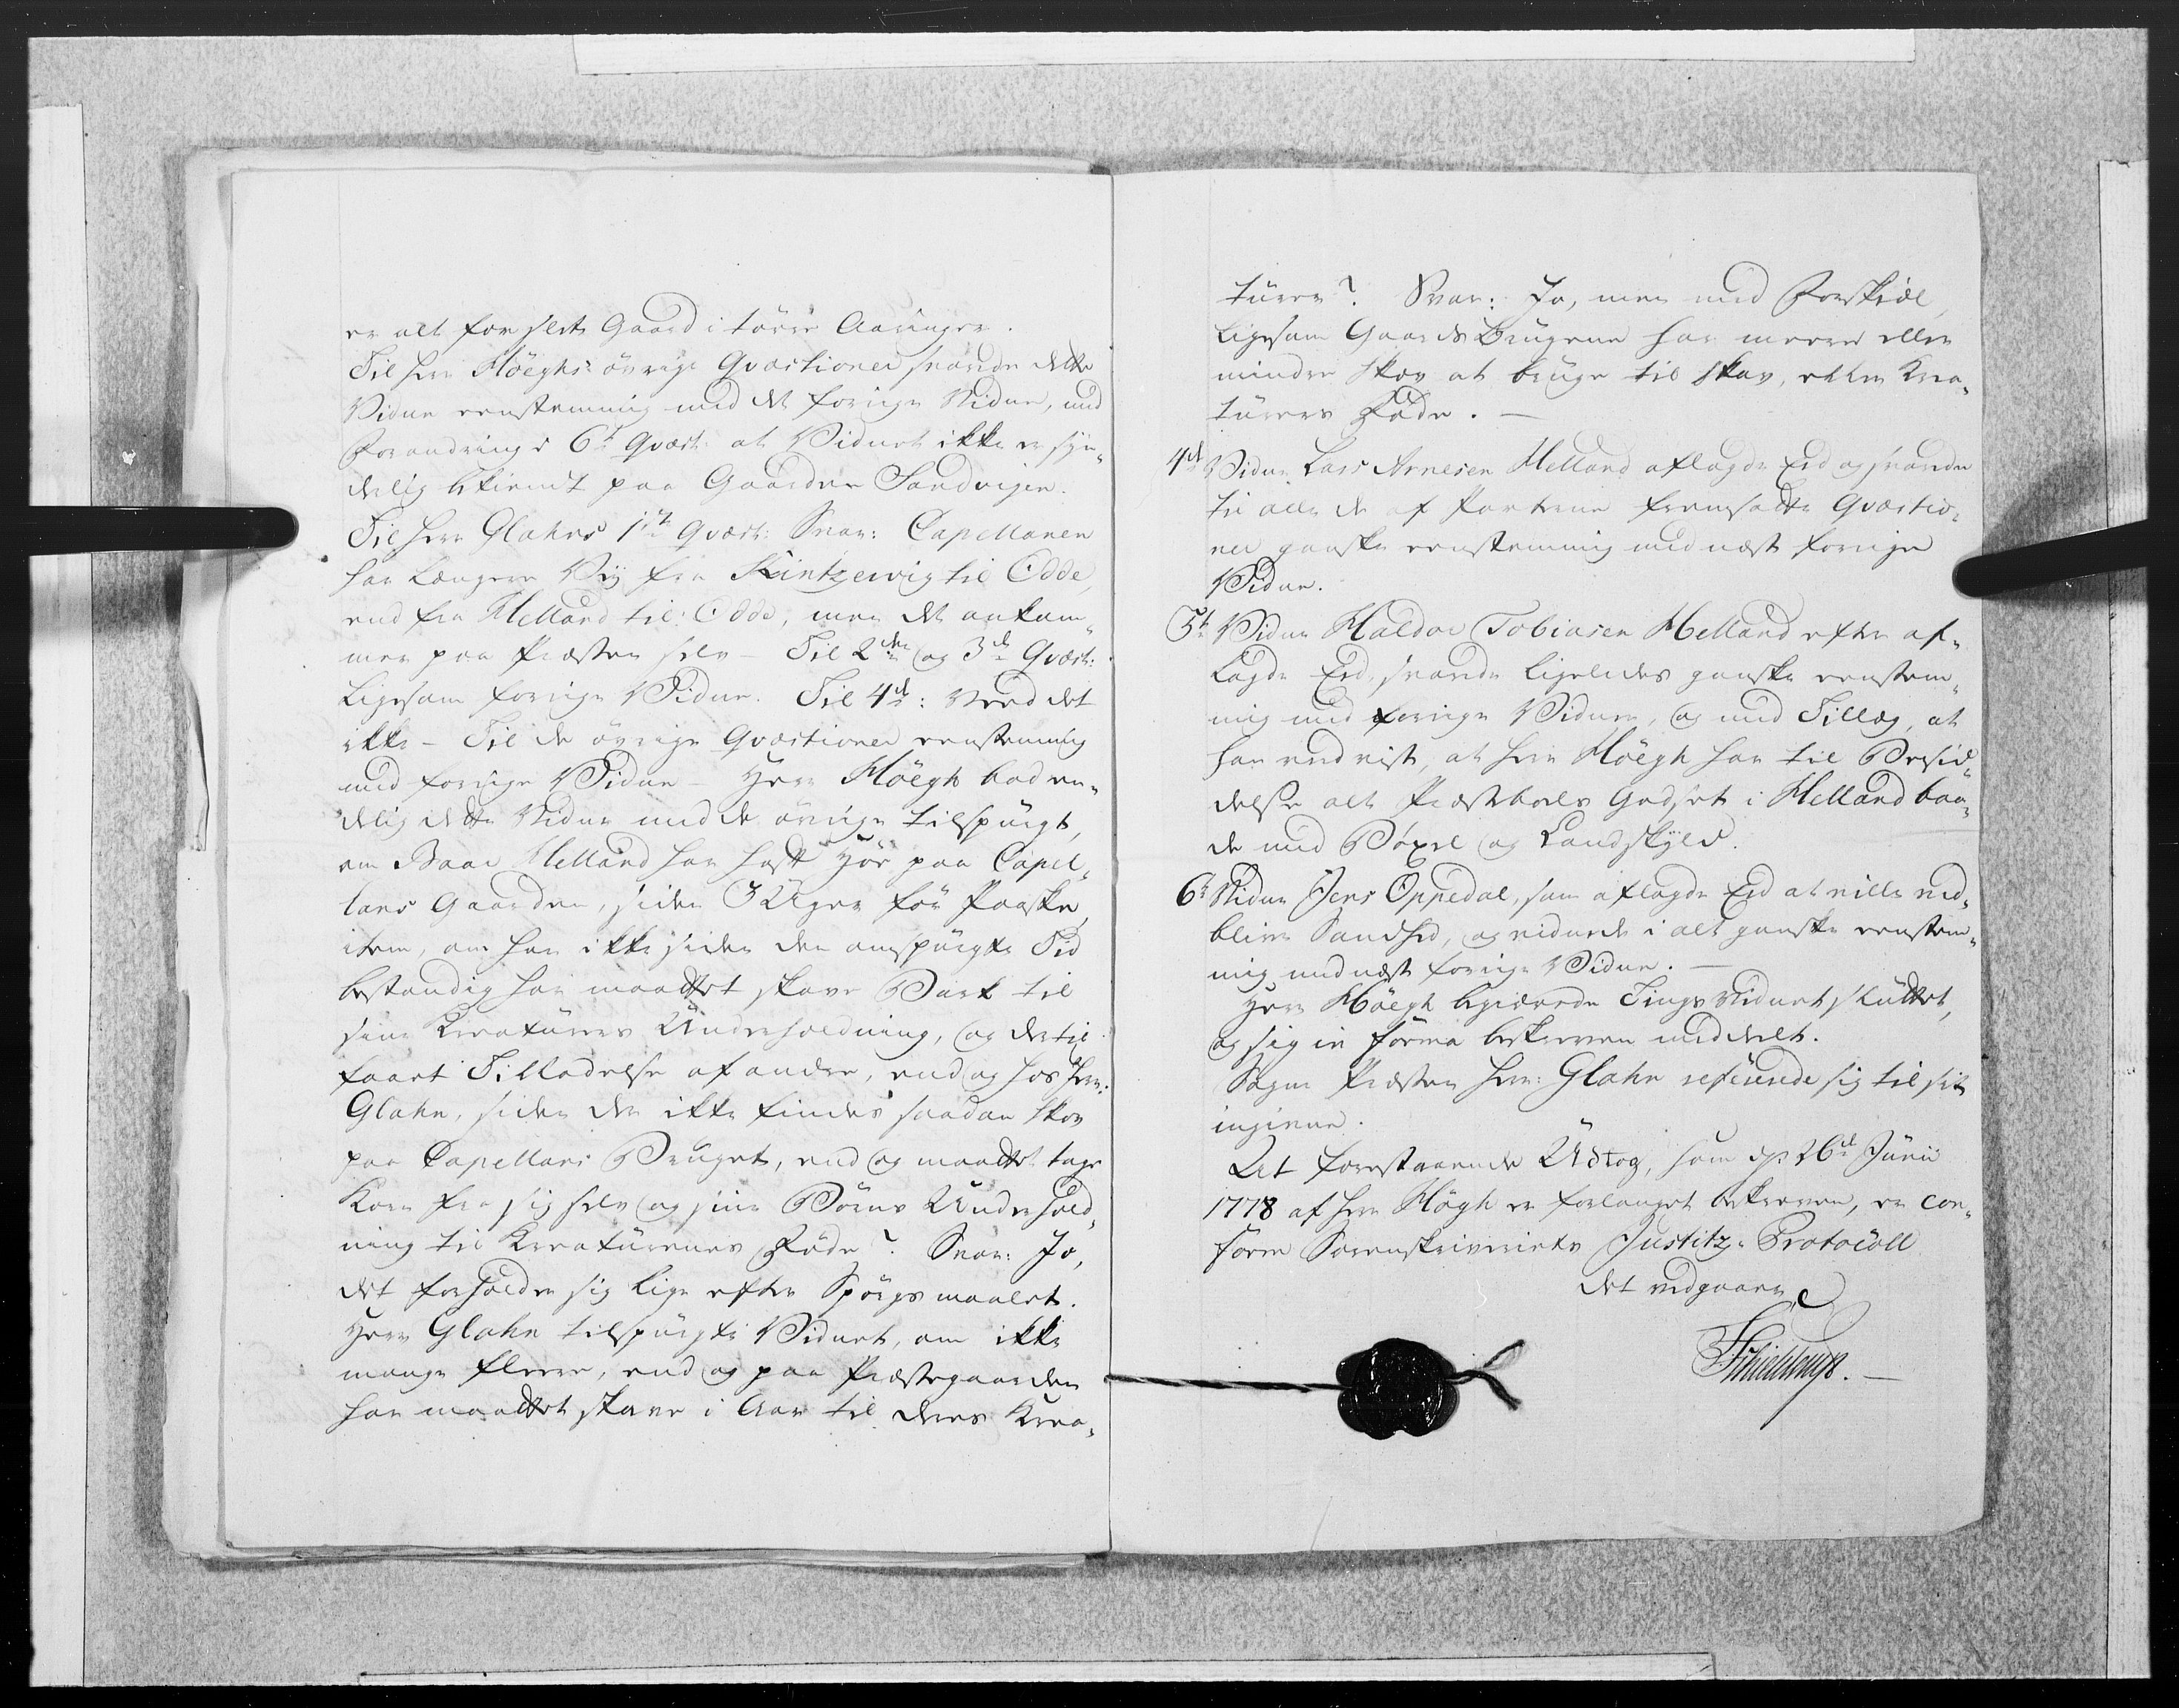 er alt for slet Gaard i tørre Aaringer.
Til Herr Høeghs øvrige Qvæstioner svarede dette
Vidne eenstemmig med det forrige Vidne, med
Forandring i 6te Qvæst: at Vidnet ikke er syn„
derlig bekiendt paa Gaarden Sandvigen.
Til Herr Glahns 1ste Qvæst: Svar: Capellanen
har længere Vej fra Kintzervig til Odde,
end fra Helland til Odde, men det ankom„
mer paa Præsten selv – Til 2den og 3de Qvæst:
ligesom forrige Vidne. Til 4de: Veed det
ikke – Til de øvrige Qvæstioner eenstemmig
med forrige Vidne – Herr Høegh bad en„
delig dette Vidne med de øvrige tilspurgt,
om Baar Helland har havt Høe paa Capel„
lans Gaarden, siden 3 Uger før Paaske,
item, om han ikke siden den omspurgte Tid
bestandig har maattet skave Bark til
sine Kreaturers Underholdning, og dertil
faaet Tilladelse af andre, end og hos Herr:
Glahn, siden der ikke findes saadan Skov
paa Capellans Bruget, end og maattet tage
Korn fra sig selv og sine Børns Underhold„
ning til Kreaturenes Føde? Svar: Jo,
det forholder sig lige efter Spørgsmaalet.
Herr Glahn tilspurgte Vidnet, om ikke
mange fleere, end og paa Præstegaarden
har maattet skave i Aar til deres Krea„
turer? Svar: Jo, men med Forskiæl,
ligesom Gaards Brugerne har meere eller
mindre Skov at bruge til Skav, eller Krea„
turers Føde. —
4de Vidne Lars Arnesen Helland aflagde Eed og svarede
til alle de af Parterne fremsatte Qvæstio„
ner ganske eenstemmig med næst forrige
Vidne.
5te Vidne Haldor Tobiasen Helland efter af„
lagde Eed, svarede ligeledes ganske eenstem„
mig med forrige Vidner, og med Tillæg, at
han veed vist, at Herr Høegh har til Besid„
delse alt Præstebols Godset i Helland baa„
de med Bøxel og Landskyld.
6te Vidne Jens Oppedal, som aflagde Eed at ville ved„
blive Sandhed, og vidnede i alt ganske eenstem„
mig med næst forrige Vidne. —
Herr Høegh begiærede Tings Vidnet sluttet,
og sig in forma beskreven meddeelt.
Sogne Præsten Herr: Glahn refererede sig til sit
ingivne.
Det forestaaende Udtog, som d: 26de Junii
1778 af Herr Høgh er forlanget beskreven, er con„
form Sorenskriveriets Justitz-Protocoll
det vedgaaer